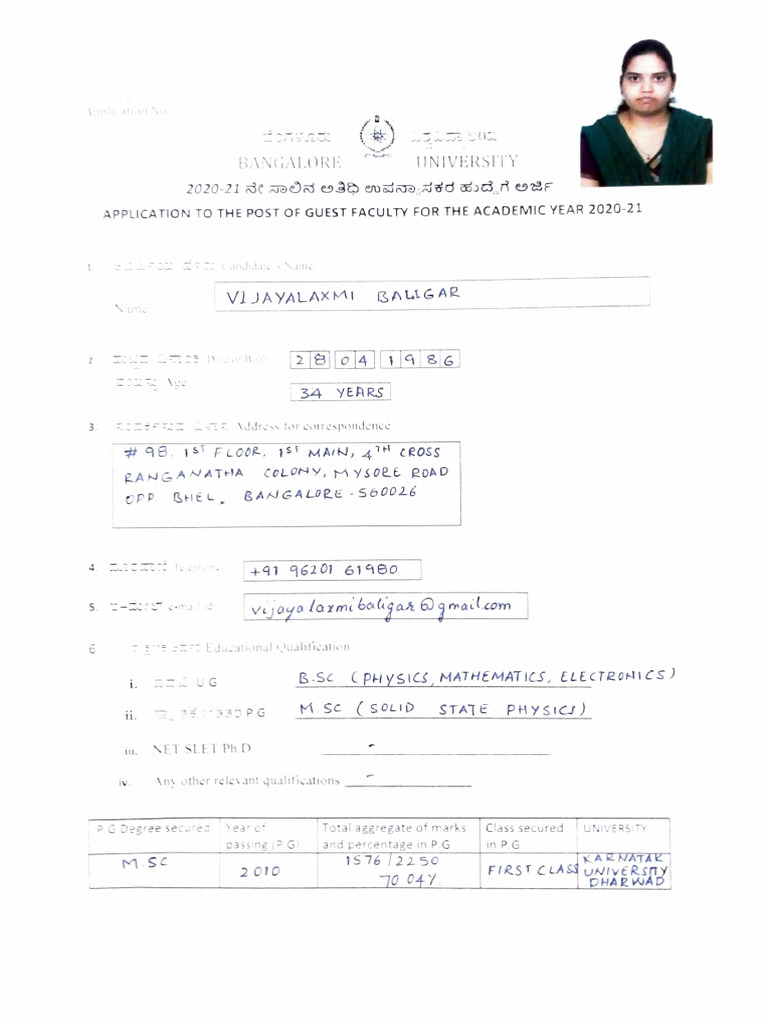 Application No
ಬೆಂಗಳೂರು ವಿಶ್ವವಿದ್ಯಾಲಯ
BANGALORE UNIVERSITY
2020-21 ನೇ ಸಾಲಿನ ಅತಿಥಿ ಉಪನ್ಯಾಸಕರ ಹುದ್ದೆಗೆ ಅರ್ಜಿ
APPLICATION TO THE POST OF GUEST FACULTY FOR THE ACADEMIC YEAR 2020-21
1. Candidate's Name
Name VIJAYALAXMI BALIGAR
2. ಹುಟ್ಟಿದ ದಿನಾಂಕ Date of Birth 28 04 1986
ವಯಸ್ಸು Age 34 YEARS
3. Address for correspondence
# 98, 1ST FLOOR, 1ST MAIN, 4TH CROSS
RANGANATHA COLONY, MYSORE ROAD
OPP BHEL, BANGALORE - 560026
4. ದೂರವಾಣಿ Telephone +91 96201 61980
5. ಇ-ಮೇಲ್ e-mail id vijayalaxmibaligar@gmail.com
6. Educational Qualification
i. ಪದವಿ U G B.SC (PHYSICS, MATHEMATICS, ELECTRONICS)
ii. ಸ್ನಾತಕೋತ್ತರ P G M SC (SOLID STATE PHYSICS)
iii. NET SLET Ph D -
iv. Any other relevant qualifications -
P G Degree secured Year of passing (P.G) Total aggregate of marks and percentage in P.G Class secured in P.G UNIVERSITY
M.SC 2010 1576/2250 70 04% FIRST CLASS KARNATAK UNIVERSITY DHARWAD